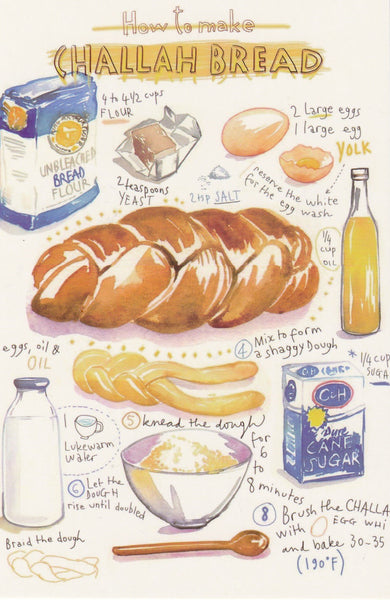 How to make
CHALLAH BREAD
4 to 4 1/2 cups
FLOUR
UNBLEACHED
BREAD
FLOUR
2 teaspoons
YEAST
2 tsp SALT
2 large eggs
1 large egg
YOLK
reserve the white
for the egg wash
1/4
cup
OIL
eggs, oil &
OIL
4 Mix to form
a shaggy Dough
* 1/4 CUP
SUGAR
C&H
C&H
Pure
CANE
SUGAR
1
Lukewarm
water
5 knead the dough
for
6
to
8 minutes
6 Let the
DOUGH
rise until doubled
8 Brush the CHALLA
with EGG WHI
and bake 30-35
(190°F)
Braid the dough